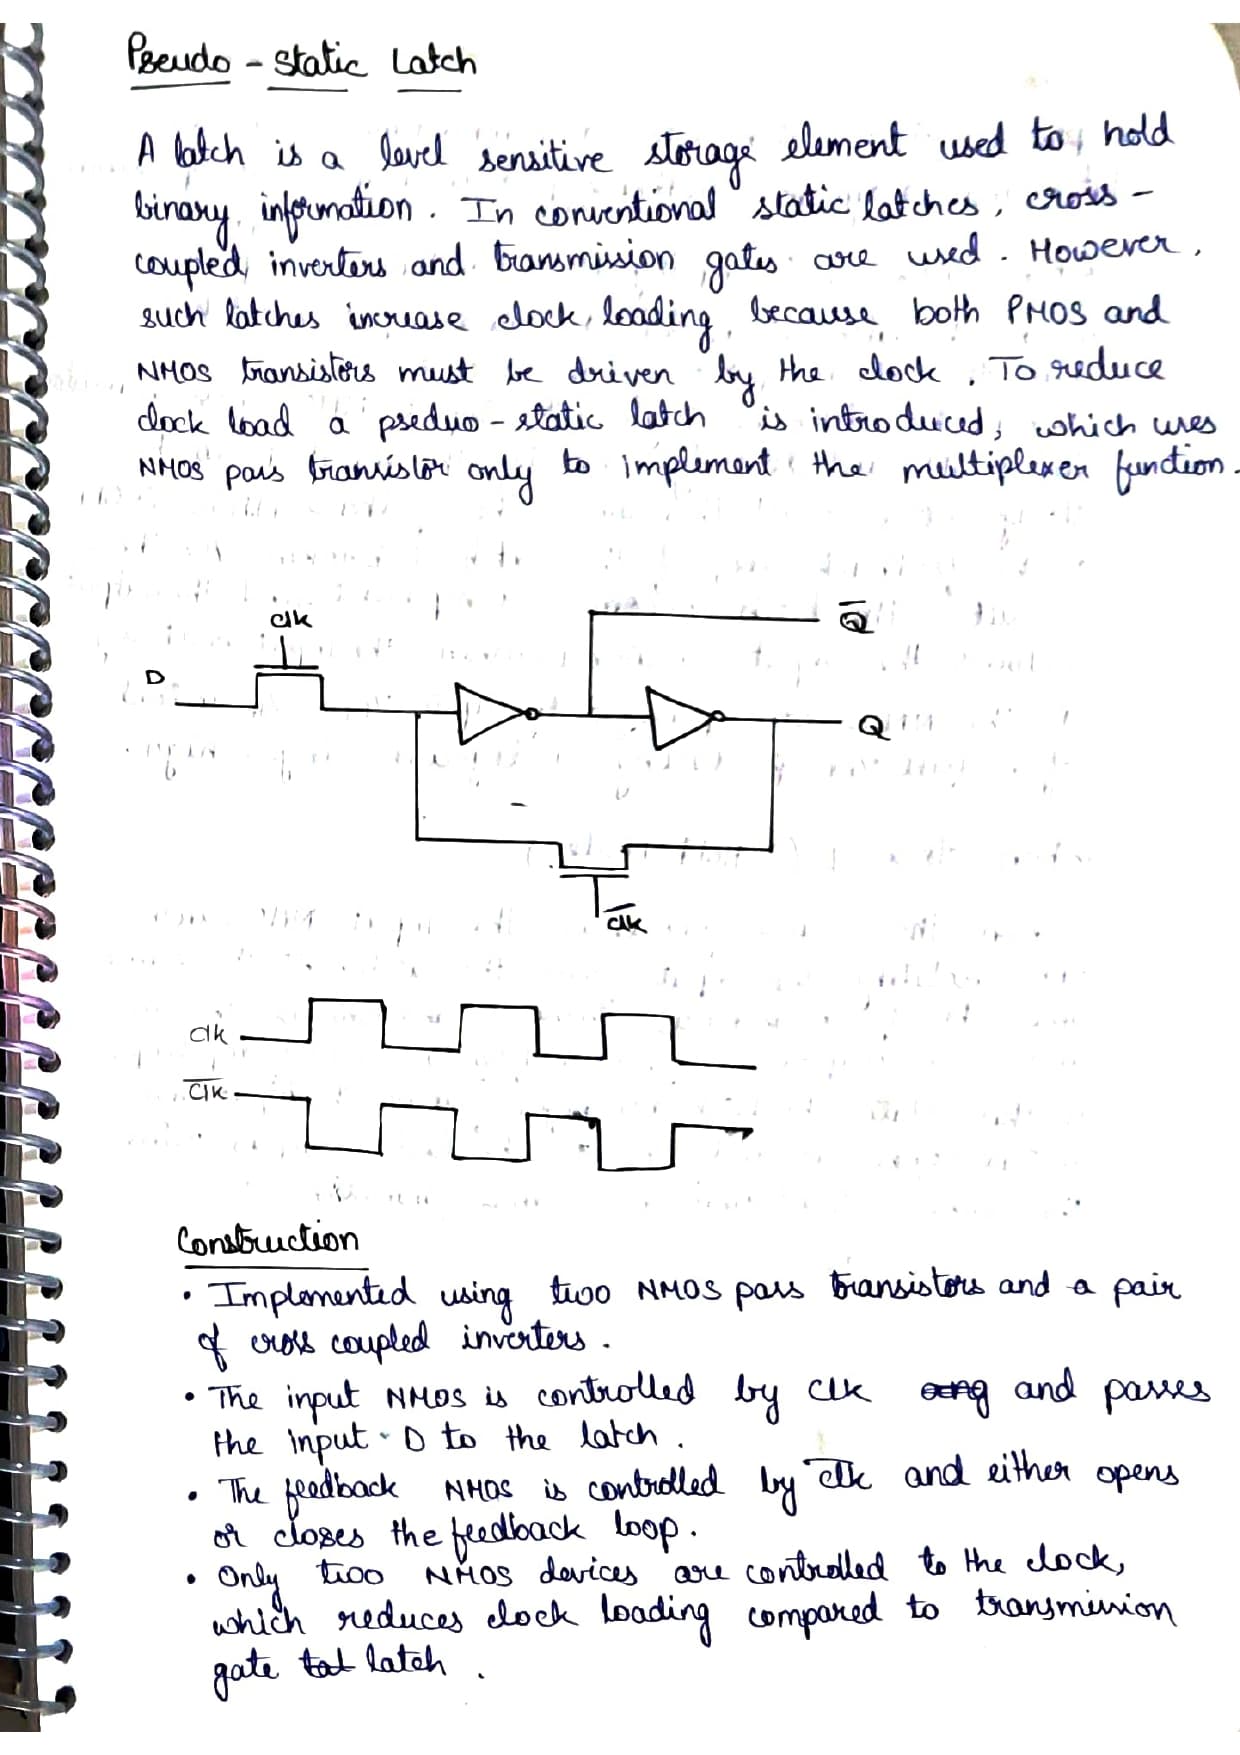 Pseudo - static Latch
A latch is a level sensitive storage element used to hold
binary information. In conventional static latches, cross -
coupled inverters and transmission gates are used. However,
such latches increase clock loading because both PMOS and
NMOS transistors must be driven by the clock. To reduce
clock load a pseduo - static latch is introduced, which uses
NMOS pass transistor only to implement the multiplexer function.
clk
Q̅
D
Q
c̅l̅k̅
clk
c̅l̅k̅
Construction
• Implemented using two NMOS pass transistors and a pair
of cross coupled inverters.
• The input NMOS is controlled by clk and passes
the input D to the latch.
• The feedback NMOS is controlled by c̅l̅k̅ and either opens
or closes the feedback loop.
• Only two NMOS devices are controlled to the clock,
which reduces clock loading compared to transmission
gate latch.